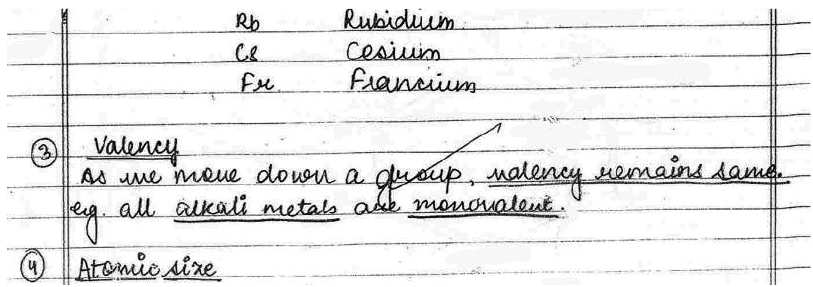 Rb Rubidium
Cs Cesium
Fr Francium
③ Valency
As we move down a group, valency remains same.
eg. all alkali metals are monovalent.
④ Atomic size